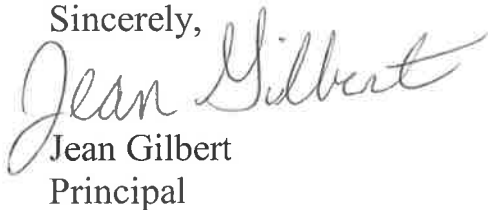 Sincerely,
Jean Gilbert
Jean Gilbert
Principal